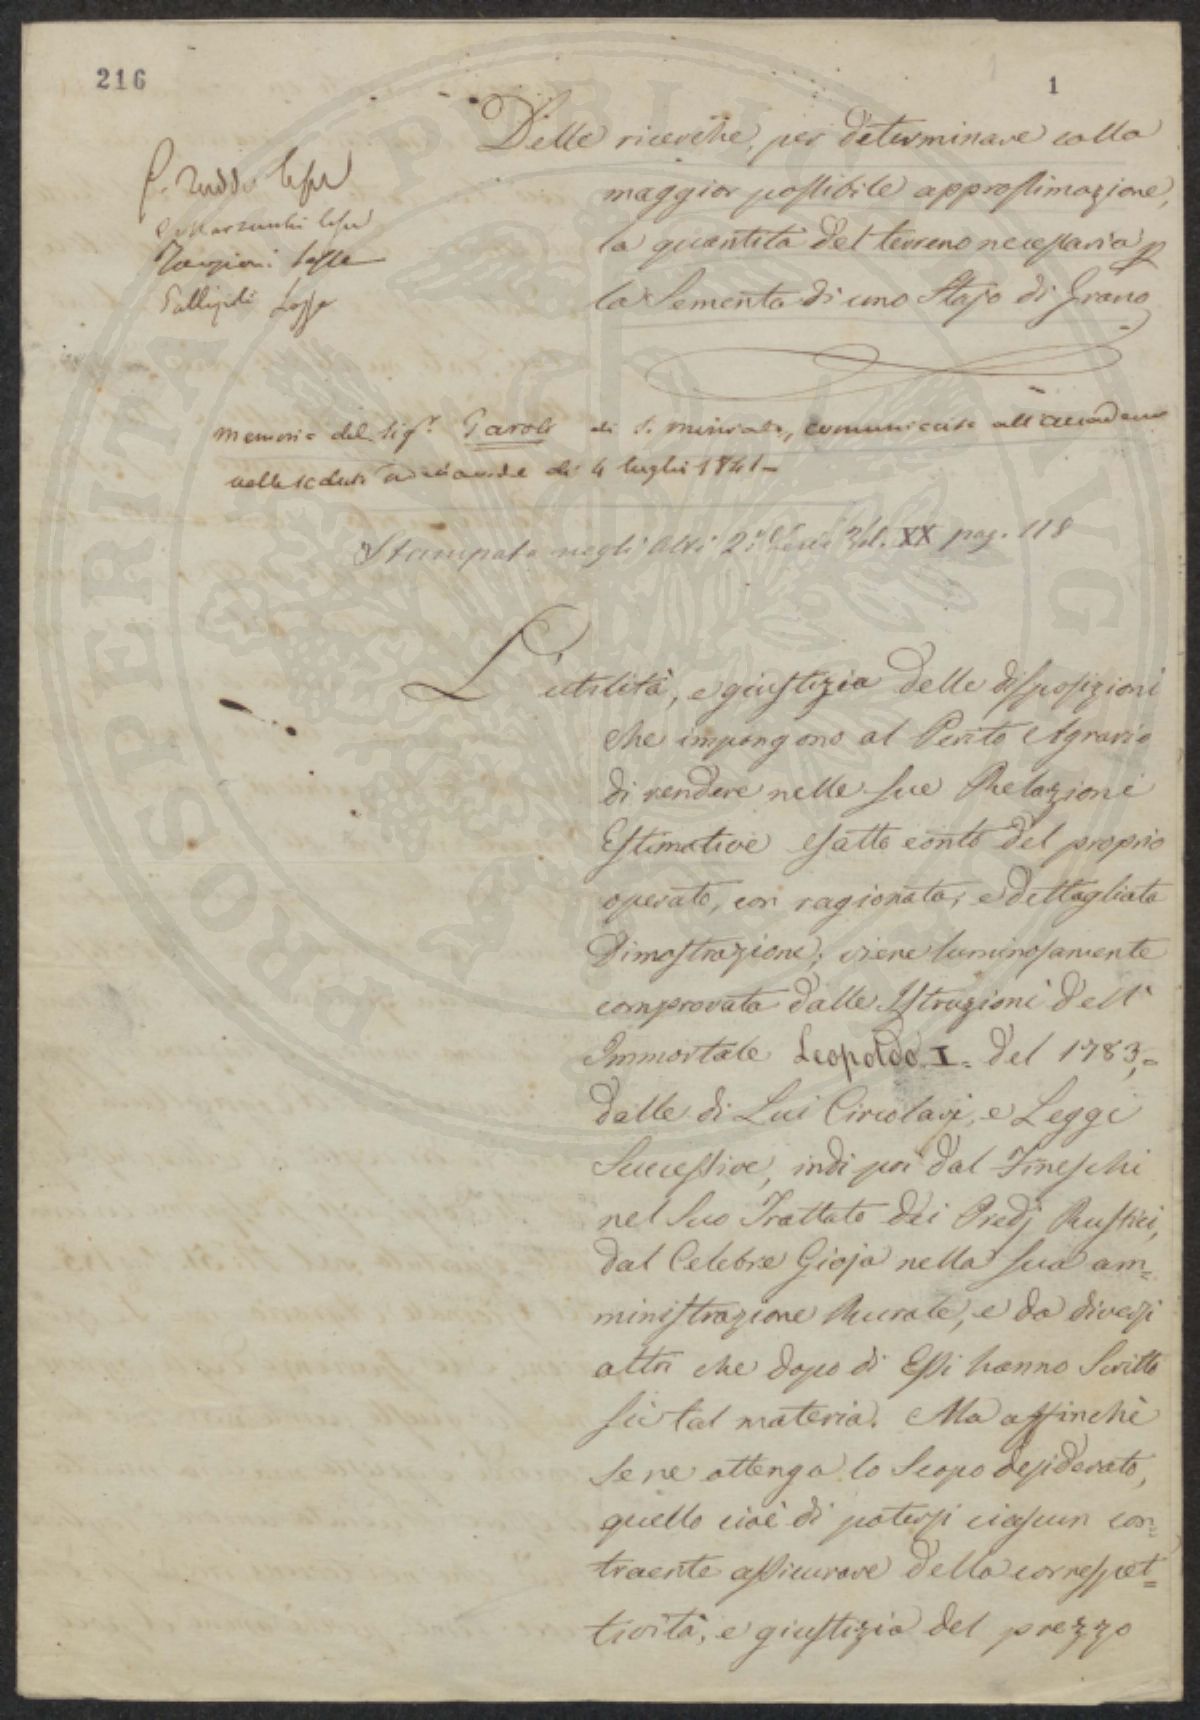 216
1
Delle ricerche, per determinare colla
maggior possibile approssimazione,
la quantità del terreno necessaria p
la Sementa di uno Stajo di Grano
memoria del Sig.r Taroli di S. Miniato, comunicata all'accademia
nella seduta del di 4 luglio 1841 -
Stampata negli Atti 2.a Serie Vol. XX pag. 118
L'utilità, e giustizia delle disposizioni
che impongono al Perito Agrario
di rendere nelle sue Relazioni
Estimative esatto conto del proprio
operato, con ragionata, e dettagliata
Dimostrazione, viene luminosamente
comprovata dalle Istruzioni dell'
Immortale Leopoldo I. del 1783,=
dalle di Lui Circolari, e Leggi
Successive, indi poi dal Fineschi
nel suo Trattato dei Predj Rustici,
dal Celebre Gioja nella sua am=
ministrazione Rurale, e da diversi
altri che dopo di Essi hanno Scritto
su tal materia. Ma affinchè
se ne ottenga lo Scopo desiderato,
quello cioè di potersi ciascun con=
traente assicurare della correspet=
tività, e giustizia del prezzo
PROSPERITA PUBLICA